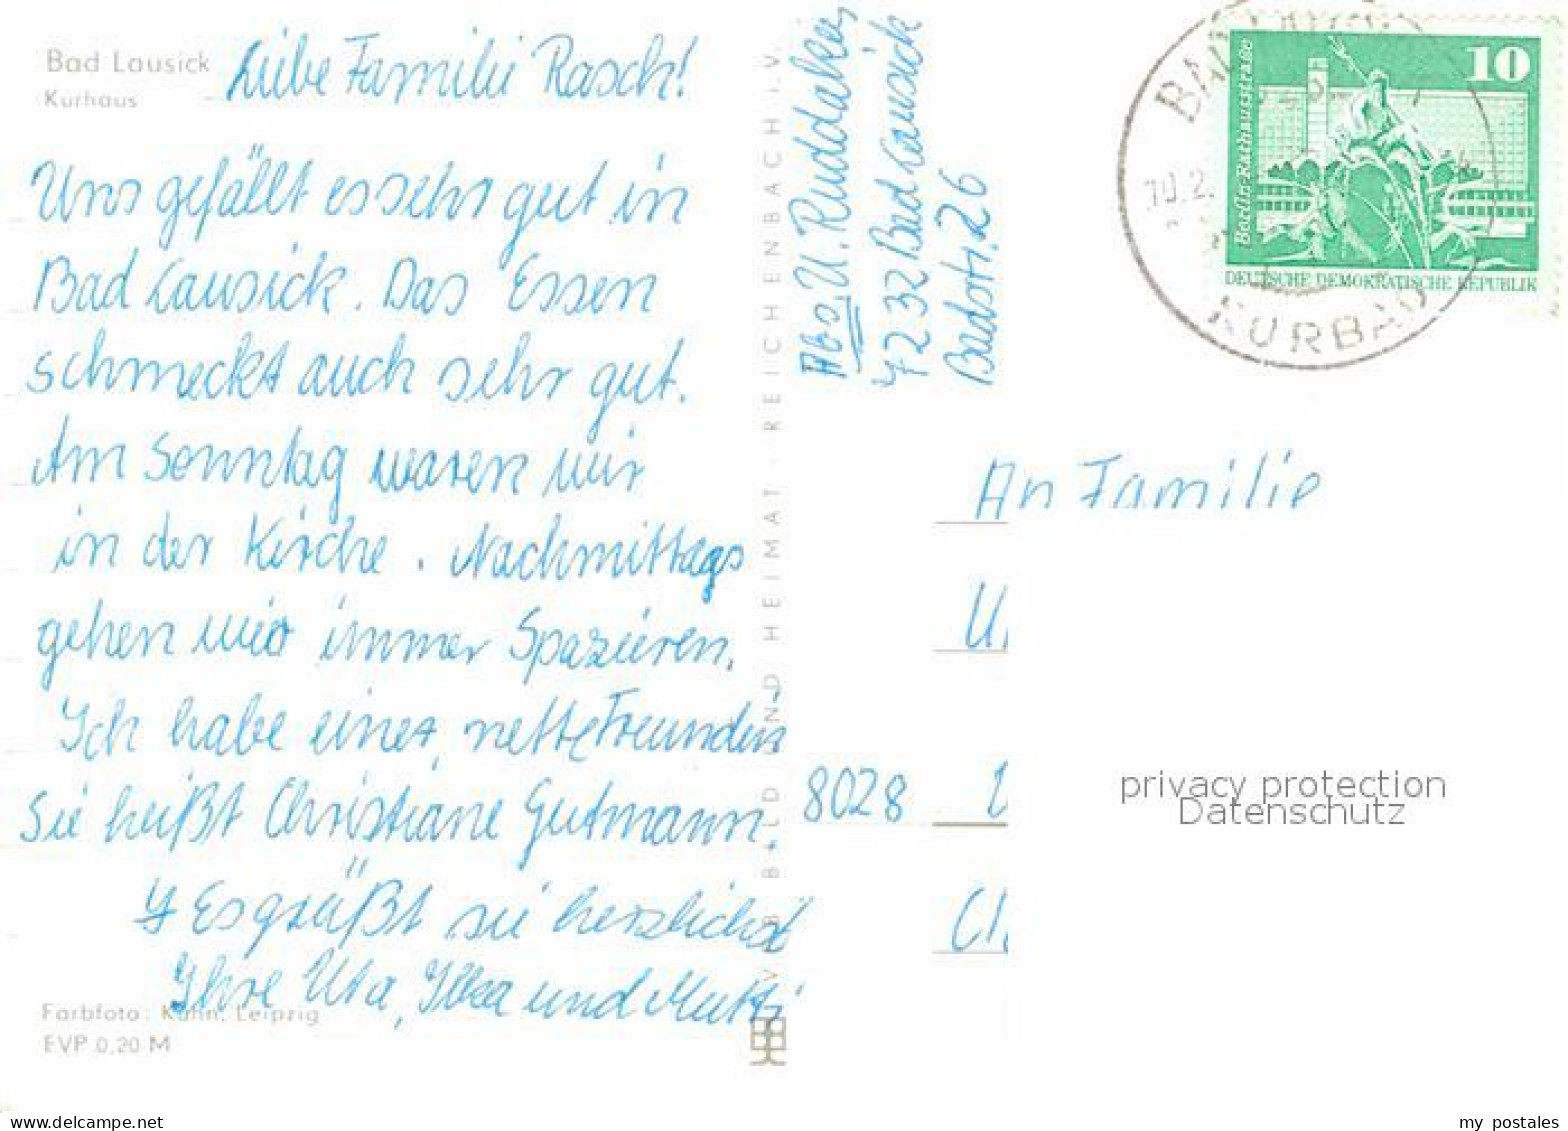 Bad Lausick
Kurhaus
Liebe Familie Rasch!
Uns gefällt es sehr gut in
Bad Lausick. Das Essen
schmeckt auch sehr gut.
Am Sonntag waren wir
in der Kirche. Nachmittags
gehen wir immer Spazieren.
Ich habe eine nette Freundin
Sie heißt Christiane Gutmann.
Es grüßt sie herzlichst
Ihre Uta, Ilka und Mutti
Farbfoto: Kühn, Leipzig
EVP 0,20 M
VEB BILD UND HEIMAT REICHENBACH I. V.
Abs. U.
7232 Bad Lausick
Badstr. 26
10
Berlin-Rathausstraße
DEUTSCHE DEMOKRATISCHE REPUBLIK
KURBAD
An Familie
8028
privacy protection
Datenschutz
www.delcampe.net
my_postales